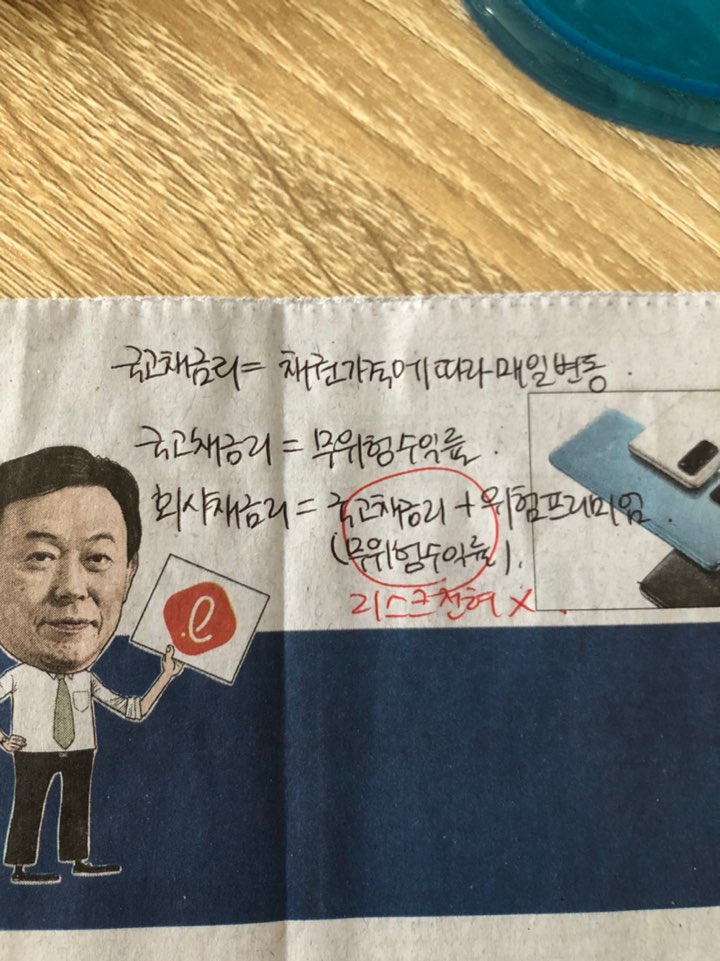 국고채금리 = 채권가격에 따라 매일 변동.
국고채금리 = 무위험수익률.
회사채금리 = 국고채금리 + 위험프리미엄.
(무위험수익률).
리스크 전혀 X.
e.